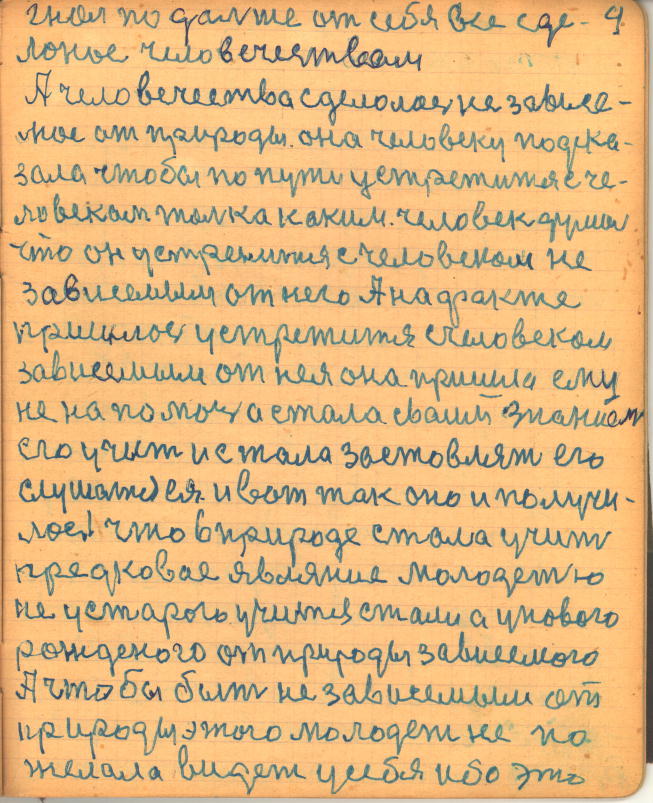 гнал по далже от себя все зде- 9
лоное человечеством
А человечества сделолос не зависе-
мое от природы. она человеку подска-
зала чтобы по пути устретится с че-
ловеком толка каким. человек думал
что он устретится с человеком не
зависемым от него А на факте
пришлос устретится с человеком
зависемым от нея она пришла ему
не на помощ а стала своим знанием
его учит и стала зостовлят его
слушатся. и вот так оно и получи-
лос! что в природе стала учит
предковае являние молодежю
не устарого учится стали а унового
рожденого от природы зависемого
А чтобы быт не зависемым от
природы этого молодеж не по
желала видет у себя ибо это